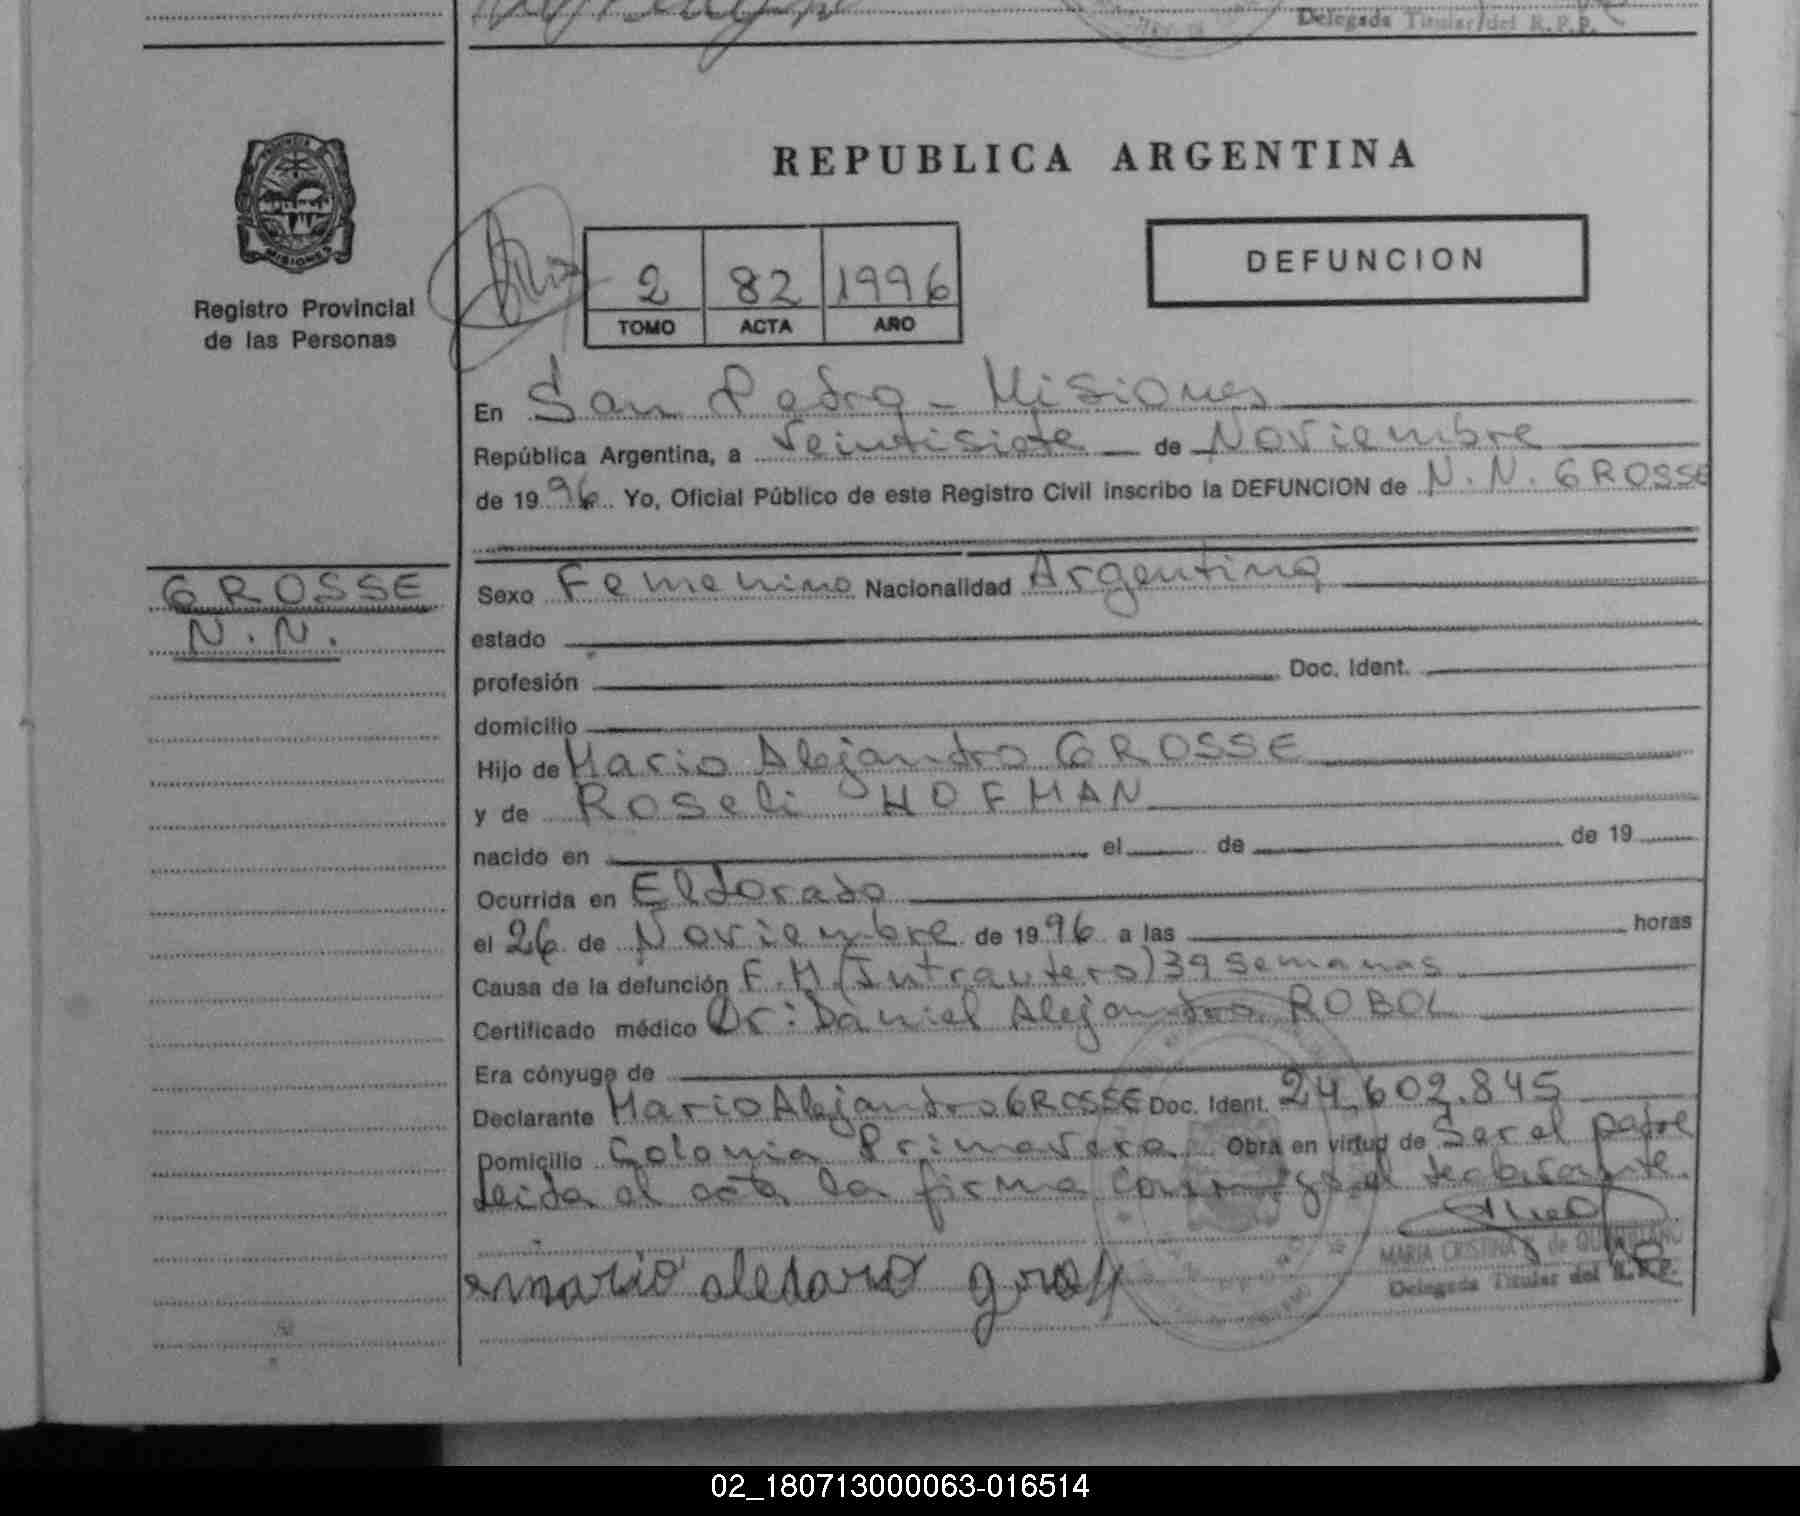 Delegada Titular del R.P.P.
PROVINCIA DE
MISIONES
Registro Provincial
de las Personas
REPUBLICA ARGENTINA
2 82 1996
TOMO ACTA AÑO
DEFUNCION
En San Pedro - Misiones
República Argentina, a veintisiete de Noviembre
de 1996 Yo, Oficial Público de este Registro Civil inscribo la DEFUNCION de N.N. GROSSE
GROSSE
N.N.
Sexo Femenino Nacionalidad Argentina
estado
profesión Doc. Ident.
domicilio
Hijo de Mario Alejandro GROSSE
y de Roseli HOFMAN
nacido en el de de 19
Ocurrida en Eldorado
el 26 de Noviembre de 1996 a las horas
Causa de la defunción F.M (Intrautero) 39 semanas
Certificado médico Dr: Daniel Alejandro ROBOL
Era cónyuge de
Declarante Mario Alejandro GROSSE Doc. Ident. 24.602.845
Domicilio Colonia Primavera Obra en virtud de Ser el padre
Leida el acta la firma conmigo el declarante.
mario
MARIA CRISTINA de
Delegada Titular del R.P.P.
02_180713000063-016514